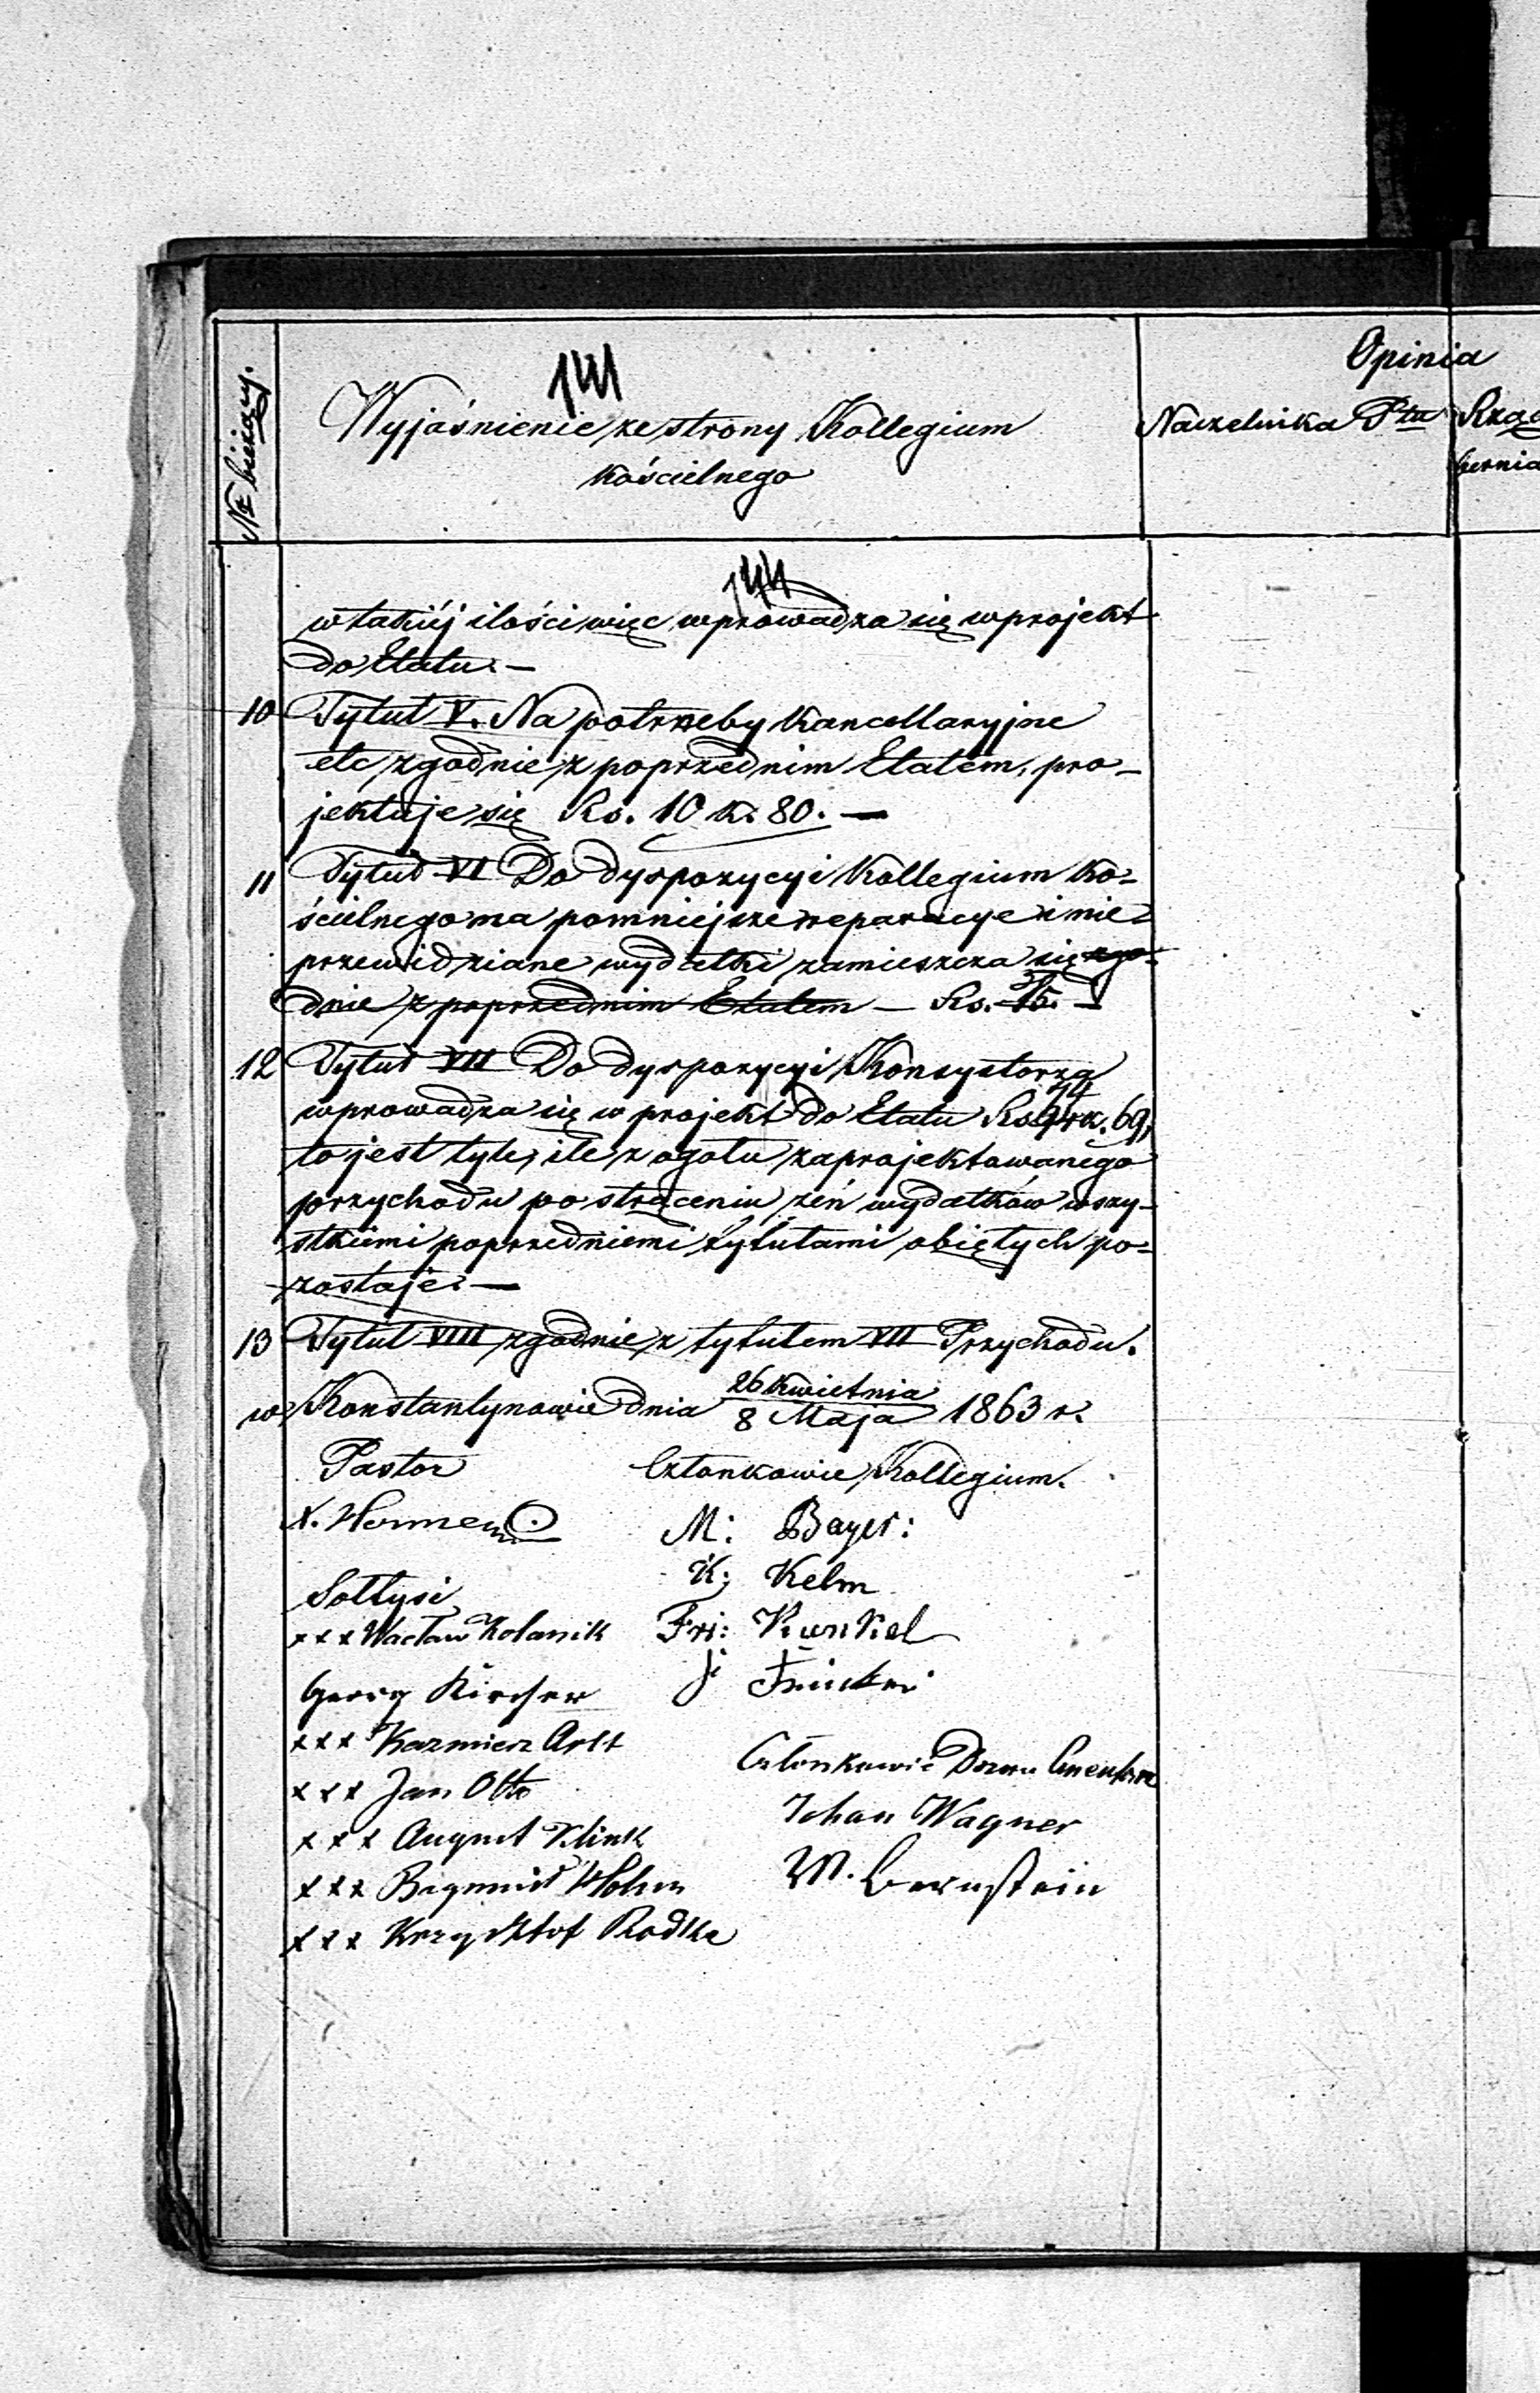 141
Opinia
№ bieżący.
Wyjaśnienie ze strony Kollegium
kościelnego
Naczelnika Ptu
Rzą
bernia
144
w takiéj ilości więc wprowadza się w projekt
do Etatu. —
10 Tytuł V. Na potrzeby kancellaryjne
etc zgodnie z poprzednim Etatem, pro-
jektuje się Rs. 10 k. 80. —
11 Tytuł VI Do dyspozycyi Kollegium ko-
ścielnego na pomniejsze reparacye i nie-
przewidziane wydatki zamieszcza się zgo-
dnie z poprzednim Etatem — Rs. 15. —
12 Tytuł VII Do dyspozycyi Konsystorza
wprowadza się w projekt do Etatu Rs 74 k. 69,
to jest tyle, ile z ogółu zaprojektowanego
przychodu po strąceniu zeń wydatków wszy-
stkiemi poprzedniemi tytułami objętych po-
zostaje. —
13 Tytuł VIII zgodnie z tytułem VII Przychodu.
w Konstantynowie dnia 26 Kwietnia / 8 Maja 1863 r.
Pastor
Członkowie Kollegium.
M: Bayer:
K: Kelm
Sołtysi
xxx Wacław Kolanik
Fri: Kunkel
J
Georg Kircher
xxx Kazmierz Arlt
Członkowie Dozoru
xxx Jan Otto
Johan Wagner
xxx August Klink
W. Bernstein
xxx
xxx Krzysztof Radke